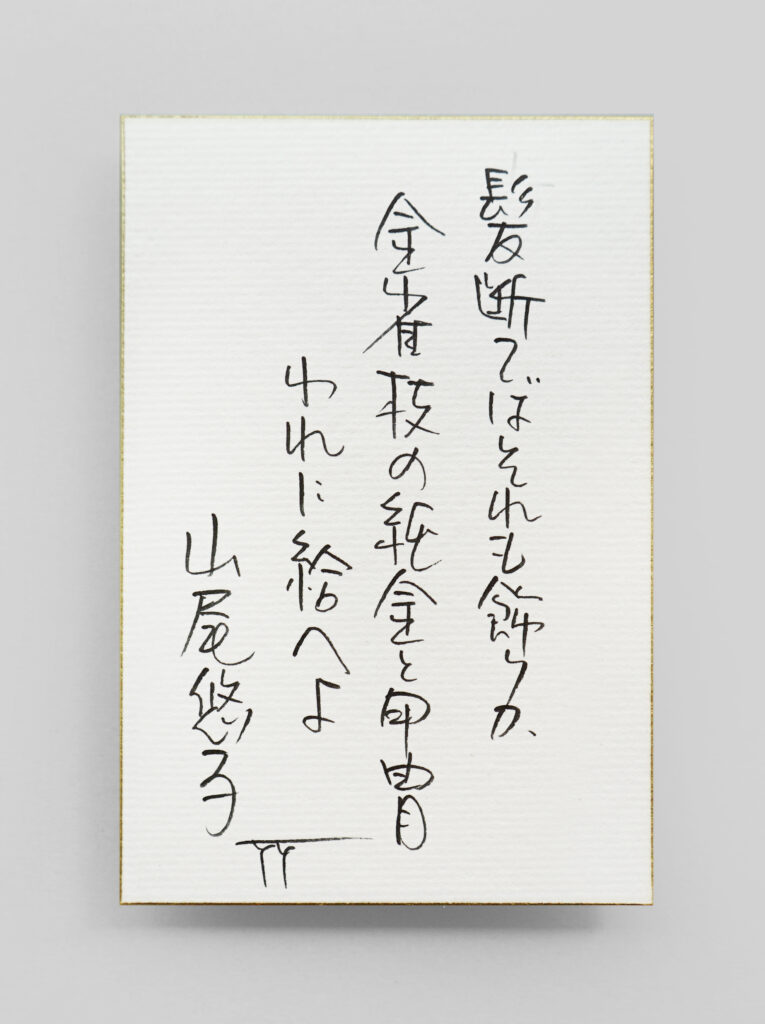 髪断てばそれも飾らむ
金雀枝の純金と甲冑
われに給へよ
山尾悠子